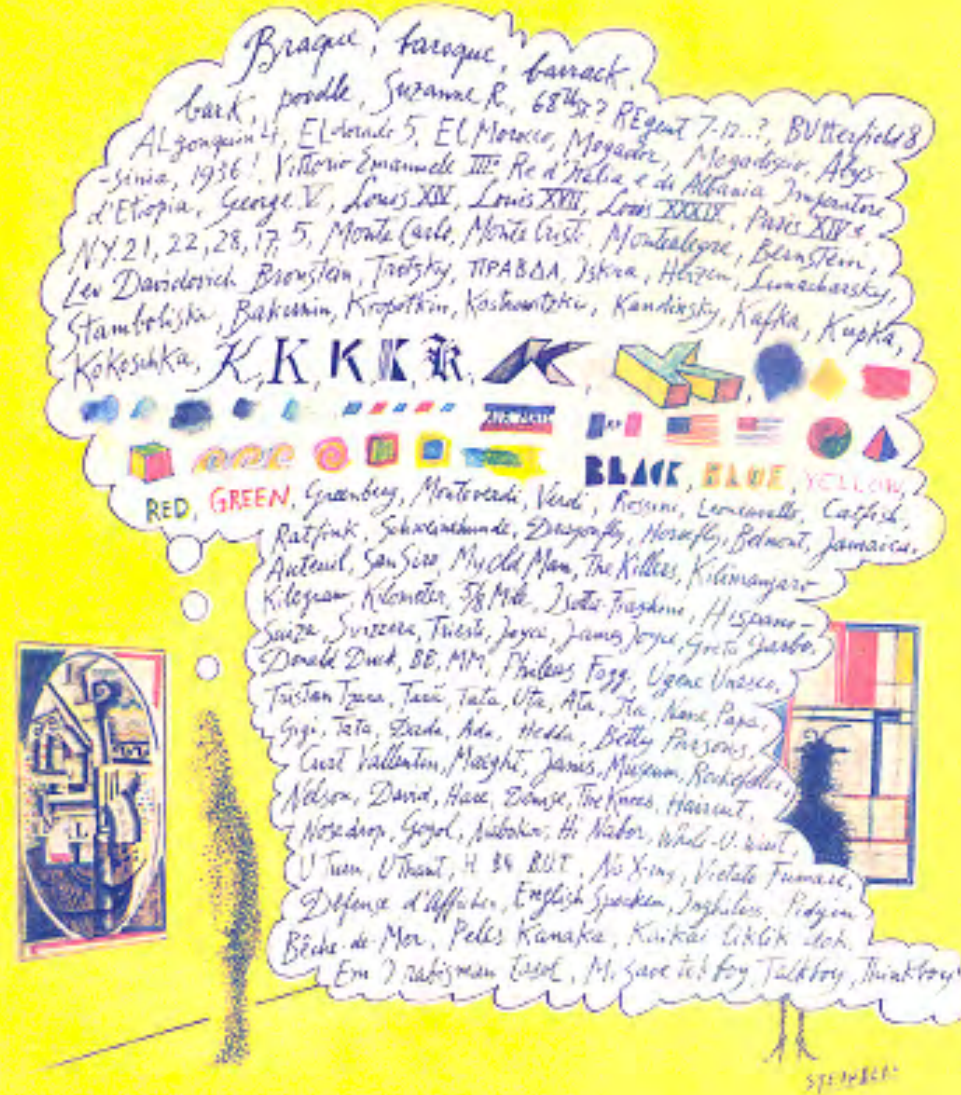 Braque, baroque, barrack,
bark, poodle, Suzanne R., 68th St.? REgent 7-12..?, BUtterfield 8
ALgonquin 4, ELdorado 5, El Morocco, Mogador, Mogadiscio, Abys-
-sinia, 1936! Vittorio Emanuele III° Re d'Italia e di Albania Imperatore
d'Etiopia, George V, Louis XIV, Louis XVII, Louis XXXIX, Paris XIVe,
N.Y. 21, 22, 28, 17, 5, Monte Carlo, Monte Cristo, Montealegre, Bernstein,
Lev Davidovich Bronstein, Trotzky, ПРАВДА, Iskra, Herzen, Lunacharsky,
Stamboliski, Bakunin, Kropotkin, Kostrowitzki, Kandinsky, Kafka, Kupka,
Kokoschka, K, K, K, K, K, K, K,
BLACK, BLUE, YELLOW,
RED, GREEN, Greenberg, Monteverdi, Verdi, Rossini, Leoncavallo, Catfish,
Ratfink, Schweinehunde, Dragonfly, Horsefly, Belmont, Jamaica,
Auteuil, San Siro, My Old Man, The Killers, Kilimanjaro
Kilogram, Kilometer, 5/8 Mile, Isotta-Fraschini, Hispano-
Suiza, Svizzera, Trieste, Joyce, James Joyce, Greta Garbo,
Donald Duck, BB, MM, Phileas Fogg, Ugene Unesco,
Tristan Tzara, Tata, Uta, Ata, Ita, Nana, Papa,
Gigi, Tata, Dada, Ada, Hedda, Betty Parsons,
Curt Vallentin, Maeght, Janis, Museum, Rockefeller,
Nelson, David, Hare, Denise, The Knees, Haircut,
Nosedrop, Gogol, Nabokov, Hi Nabor,
U Turn, U Thant, No X-ing, Vietato Fumare,
Défense d'Afficher, English Spoken, Pidgin
Bêche-de-Mer, Kanaka, Kaikai
Talkboy, Thinkboy
STEINBERG